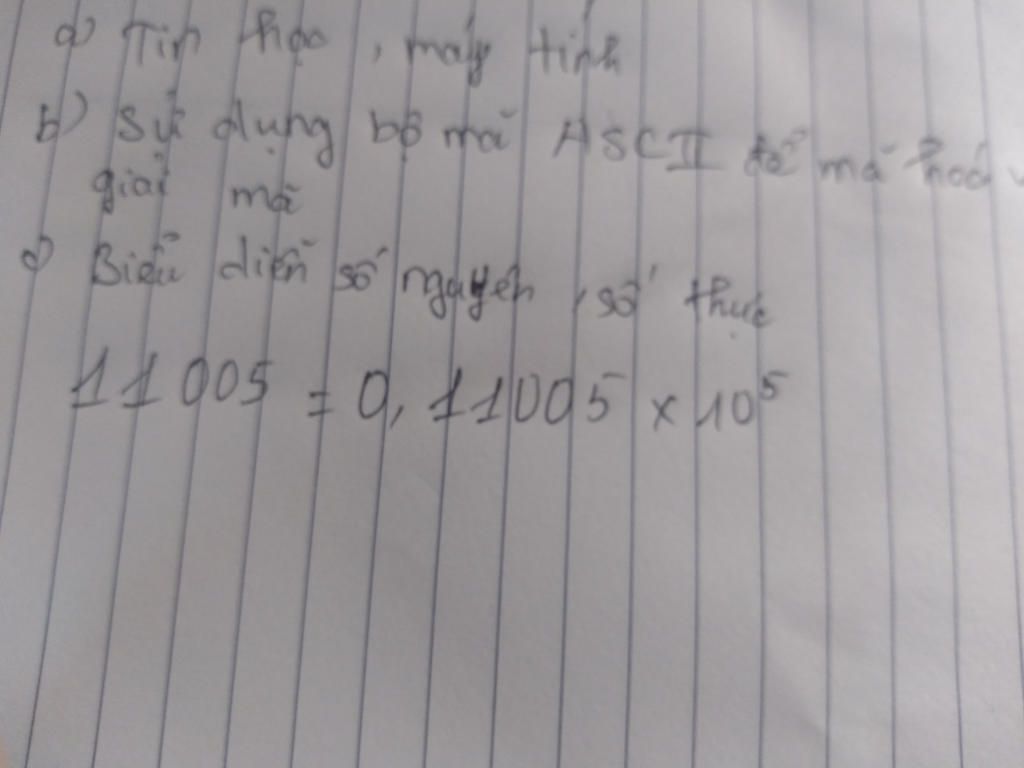 a) Tin học, máy tính
b) Sử dụng bộ mã ASCII để mã hoá
giải mã
c) Biểu diễn số nguyên, số thực
11005 = 0,11005 x 10⁵